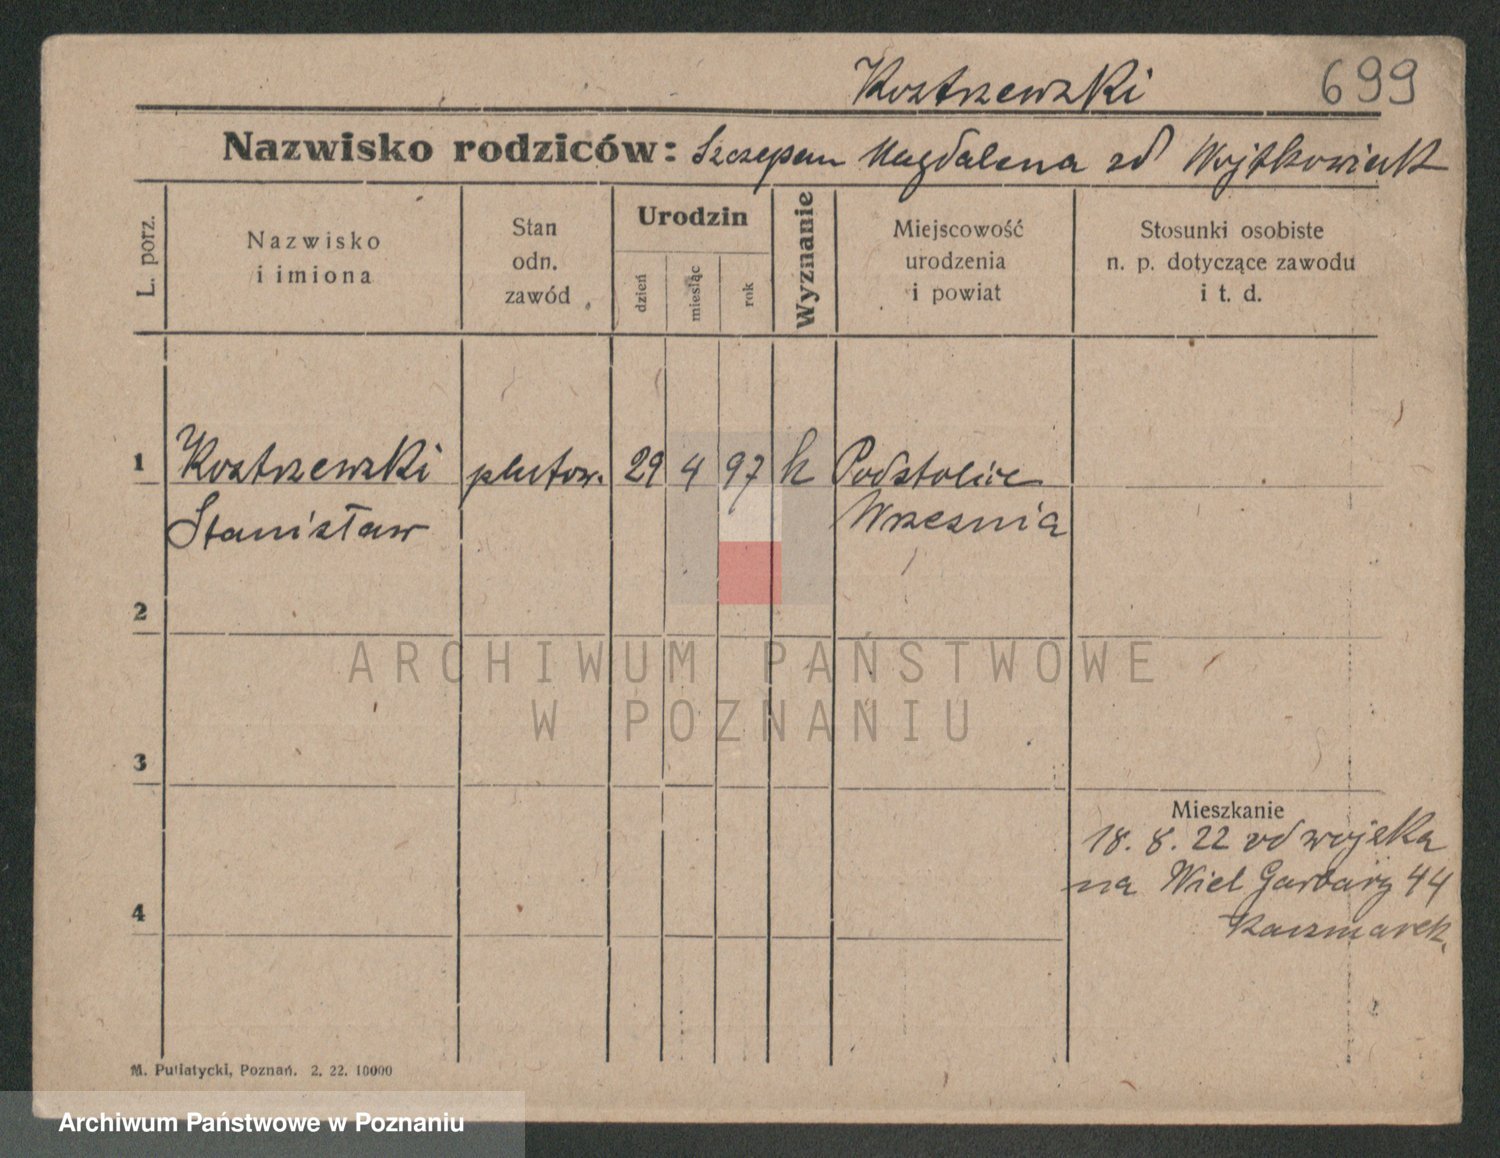 Kostrzewski 699
Nazwisko rodziców: Szczepan Magdalena zd Wojtkowiak
L. porz.
Nazwisko
i imiona
Stan
odn.
zawód
Urodzin
dzień
miesiąc
rok
Wyznanie
Miejscowość
urodzenia
i powiat
Stosunki osobiste
n. p. dotyczące zawodu
i t. d.
1 Kostrzewski plutow. 29 4 97 k Podstolice
Stanisław Wrzesnia
2
ARCHIWUM PAŃSTWOWE
W POZNANIU
3
Mieszkanie
18. 8. 22 od wojska
na Wiel Garbary 44
Kaczmarek.
4
M. Putiatycki, Poznań. 2. 22. 10000
Archiwum Państwowe w Poznaniu